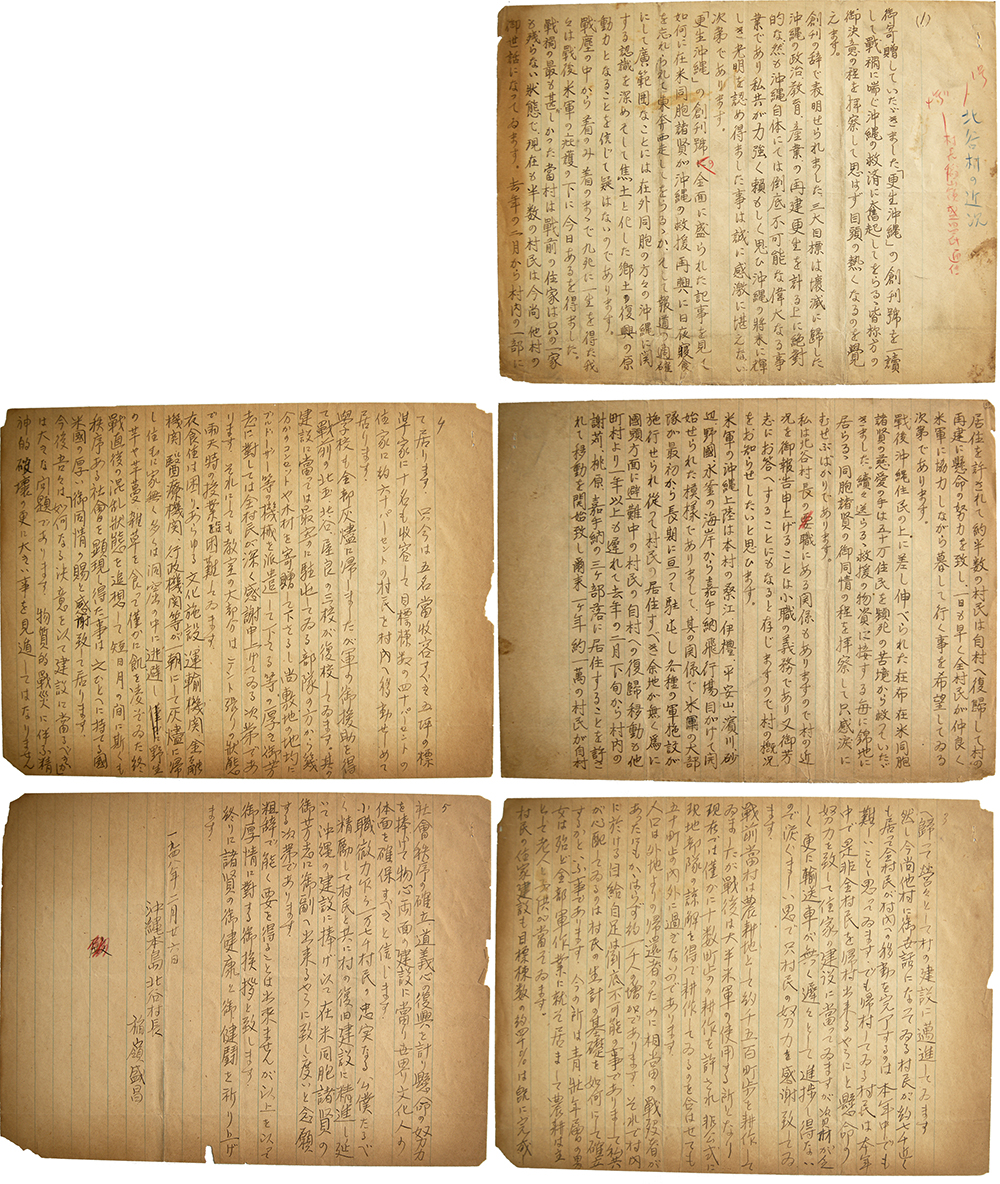 (1)
北谷村の近況
御寄贈していただきました「更生沖縄」の創刊號を一讀
して戰禍に喘ぐ沖縄の救済に奮起してをらるゝ皆樣方の
御決意の程を拝察して思はず目頭の熱くなるのを覺
えます。
創刊の辞で表明せられました三大目標は壊滅に歸した
沖縄の政治教育、産業の再建更生を計る上に絶對
的な然も沖縄自体にては倒底不可能な偉大なる事
業であり私共が力強く頼もしく思ひ沖縄の將来に輝
しき光明を認め得ました事は誠に感激に堪えない
次第であります。
「更生沖縄」の創刊號の全面に盛られた記事を見て
如何に在米同胞諸賢が沖縄の救援再興に日夜寢食
を忘れられて東奔西走してをらるゝか、そして報道の適確
にして廣範囲なことには在外同胞の方々の沖縄に関
する認識を深めそして焦土と化した郷土の復興の原
動力となることを信じて疑はないのであります。
戰塵の中から着のみ着のまゝで九死に一生を得た我
々は戰後米軍の庇護の下に今日あるを得ました。
戰禍の最も甚しかった當村は戰前の住家は只の一家
も残らない状態で、現在も半数の村民は今尚他村の
御世話になってゐます。去年の二月から村内の一部に
居住を許されて約半数の村民は自村へ復歸して村の
再建に懸命の努力を致し、一日も早く全村民が仲良く
米軍に協力しながら暮して行く事を希望してゐる
次第であります。
戰後沖縄住民の上に差し伸べられた在布在米同胞
諸賢の慈愛の手は五十万住民を頻死の苦境から救っていただ
きました。續々送らるゝ救援の物資に接する毎に錦地に
居らるゝ同胞諸賢の御同情の程を拝察して只感涙に
むせぶばかりであります。
私は北谷村長の職にある関係もありますので村の近
況を御報告申上げることは小職の義務であり又御芳
志にお答へすることにもなると存じますので村の概況
をお知らせしたいと思ひます。
米軍の沖縄上陸は本村の桑江、伊禮、平安山、濱川、砂
辺、野國、水釜の海岸から嘉手納飛行場目がけて開
始せられた模樣でありまして、其の関係で本村の大部
隊が最初から長期に亘って駐屯し各種の軍施設が
施行せられ從って村民の居住すべき余地が無く為に
國頭方面に避難中の村民の自村への復歸移動も他
町村より一年以上も遅れて去年の二月下旬から村内の
謝苅、桃原、嘉手納の三ヶ部落に居住することを許さ
れて移動を開始致し爾来一ヶ年、約一萬の村民が自村
3
に歸って營々として村の建設に邁進してゐます
然し今尚他村に御世話になってゐる村民が約七千近く
も居って全村民が村内への移動を完了するのは本年中でも
難しいことゝ思ってゐます。でも歸村してゐる村民は本年
中で是非全村民を歸村出来るやうにと懸命の
努力を致して住家の建設に當ってゐますが資材が乏
しく更に輸送車も無く遅々として進捗し得ない
ので涙ぐましい思で只村民の努力を感謝致してゐ
ます。
戰前當村は農耕地として約千五百町歩を耕作して
ゐましたが戰後は大半米軍の使用する所となり
現在では僅かに十数町歩の耕作を許され非公式に
現地部隊の諒解を得て耕作してゐるのを合はせても
五十町歩の内外に過ぎないのであります。
人口は外地よりの歸還者のために相當の戰歿者が
あったにもかゝはらず約一千人の増加であります。それで村内
に於ける自給自足は倒底不可能の事でありまして約共
が心配してゐるのは村民の生計の基礎を如何にして確立
するかと云ふ事であります。今の所は青壯年層の男
女は殆ど全部軍作業に就き居りまして農耕は主
として老人と子供が當ってゐます。
村民の住家建設も目標棟数の約四十%は既に完成
4
て居ります 只今は五名當收容すべき五坪の標
準家に十名も收容して目標棟数の四十パーセントの
住家に約六十パーセントの村民を村内へ移動せしめて
居ります。
學校も全部灰燼に歸しましたが軍の御後援を得
て戰前の北谷、屋良の二校が復校して居ります。其の
建設に當っては最寄に駐屯してゐる部隊の方から幾
分かのコンセットや木材を寄贈して下さるし尚敷地の地均に
ブルドーザー等の機械を派遣して下さる等の厚き御芳
志に對しては全村民は深く感謝申上げてゐる次第であ
ります。それにしても教室の大部分はテント張りの状態
で雨天時の授業は困難してゐます。
衣食住は困りあらゆる文化施設、運輸機関、金融
機関、醫療機関、行政機関等が一朝にして灰燼に歸
し住むに家無く多くは洞窟の中に逃避し野生
の甘平や甘蔗、雑草を食って僅かに飢を凌ぎゐた終
戰直後の混乱状態を追想して短日月の間に斯くも
秩序ある社會を顕現し得た事はひとへに持てる國
米國の厚い御同情の賜と感謝致して居ります。
今後吾々は如何なる決意を以て建設に當るべきか
は大きな問題であります。物質的戰災に伴ふ精
神的破壊の更に大きい事を見逃してはなりません
5
社會秩序の確立、道義心の復興を計り懸命の努力
を捧げて物心両面の建設に當り五男り文化人の
体面を確保すべきと信じます。
小職微力乍ら一万七千村民の忠実なる公僕たるべ
く精勵して村民と共に村の復旧建設に精進し延
いて沖縄の建設に捧げ以て在米同胞諸賢の
御芳志に御副ひ出来るやうに致し度いと念願
する次第であります。
粗辞で能く要を得ることは出来ませんが以上を以って
御厚情に對する御挨拶と致します。
終りに諸賢の御健康と御健闘を祈り上げ
ます。
一九四八年二月廿六日
沖縄本島北谷村長
稲嶺盛昌